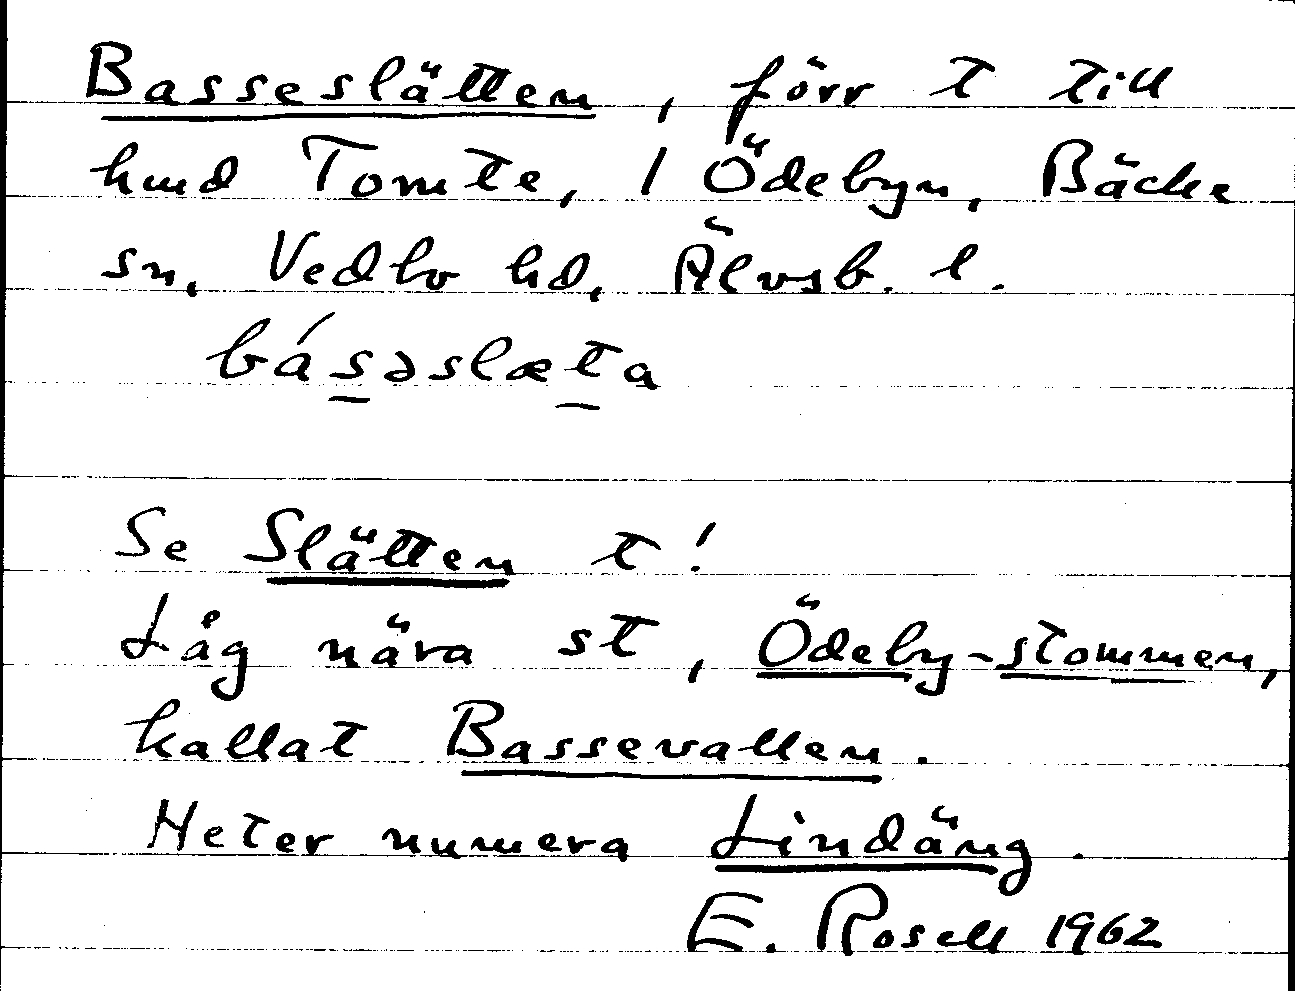 Basseslätten, förr t till
hmd Tomte, 1 Ödebyn, Bäcke
sn, Vedbo hd, Älvsb. l.
básəslæta
Se Slätten t!
Låg nära st, Ödeby-stommen,
kallat Bassevallen.
Heter numera Lindäng.
E. Rosell 1962